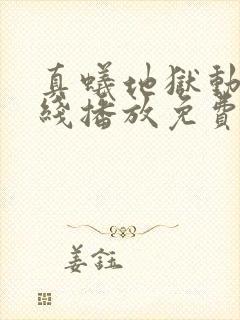 真蟻地獄動
綫播放免費
姜鈺